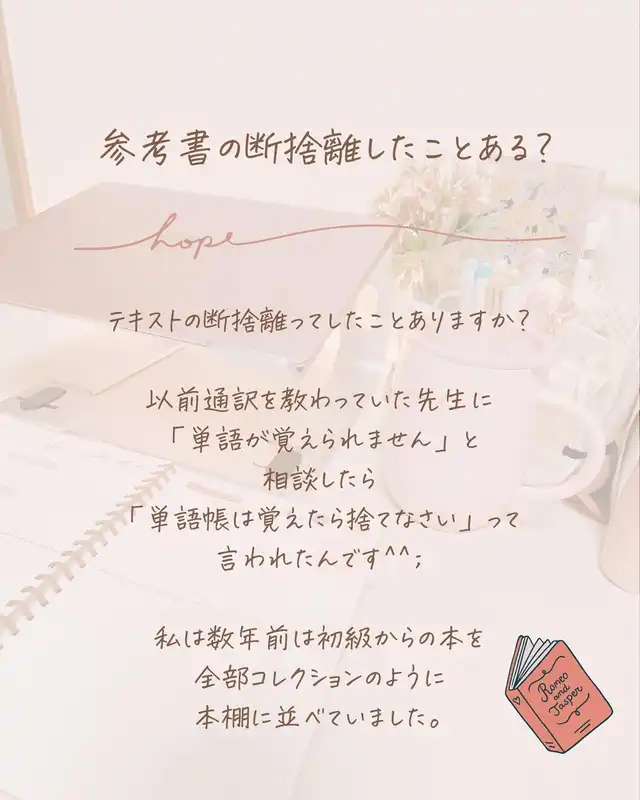 参考書の断捨離したことある?
hope
テキストの断捨離ってしたことありますか?
以前通訳を教わっていた先生に
「単語が覚えられません」と
相談したら
「単語帳は覚えたら捨てなさい」って
言われたんです^^;
私は数年前は初級からの本を
全部コレクションのように
本棚に並べていました。
Romeo
and
Jasper